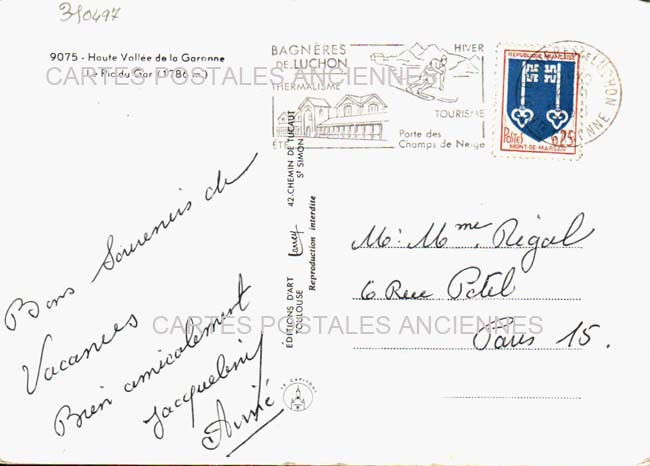 310497
9075 - Haute Vallée de la Garonne
Le Pic du Gar (1786 m.)
CARTES POSTALES ANCIENNES
BAGNÈRES
DE LUCHON
THERMALISME
ÉTÉ
HIVER
TOURISME
Porte des
Champs de Neige
REPUBLIQUE FRANÇAISE
POSTES
0,25
MONT-DE-MARSAN
LUCHON
GARONNE
Bons Souvenirs de
Vacances
Bien amicalement
Jacqueline
Aimé
ÉDITIONS D'ART
TOULOUSE
Larrey
42, CHEMIN DE TUCAUT
St SIMON
Reproduction interdite
LE CAPITOLE
Mr Mme Régal
6 Rue Petel
Paris 15.
CARTES POSTALES ANCIENNES